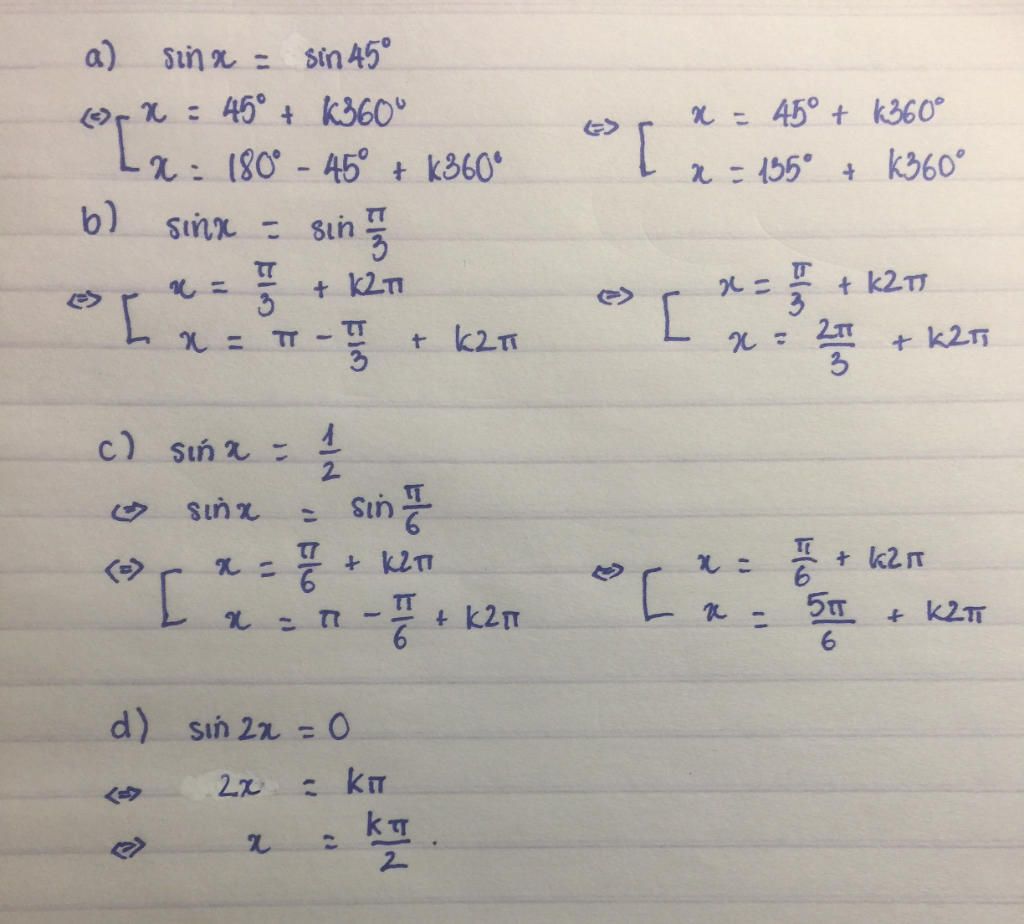 a) sin x = sin 45°
⇔ [ x = 45° + k360° ⇔ [ x = 45° + k360°
x = 180° - 45° + k360° x = 135° + k360°
b) sin x = sin π/3
⇔ [ x = π/3 + k2π ⇔ [ x = π/3 + k2π
x = π - π/3 + k2π x = 2π/3 + k2π
c) sin x = 1/2
⇔ sin x = sin π/6
⇔ [ x = π/6 + k2π ⇔ [ x = π/6 + k2π
x = π - π/6 + k2π x = 5π/6 + k2π
d) sin 2x = 0
⇔ 2x = kπ
⇔ x = kπ/2 .